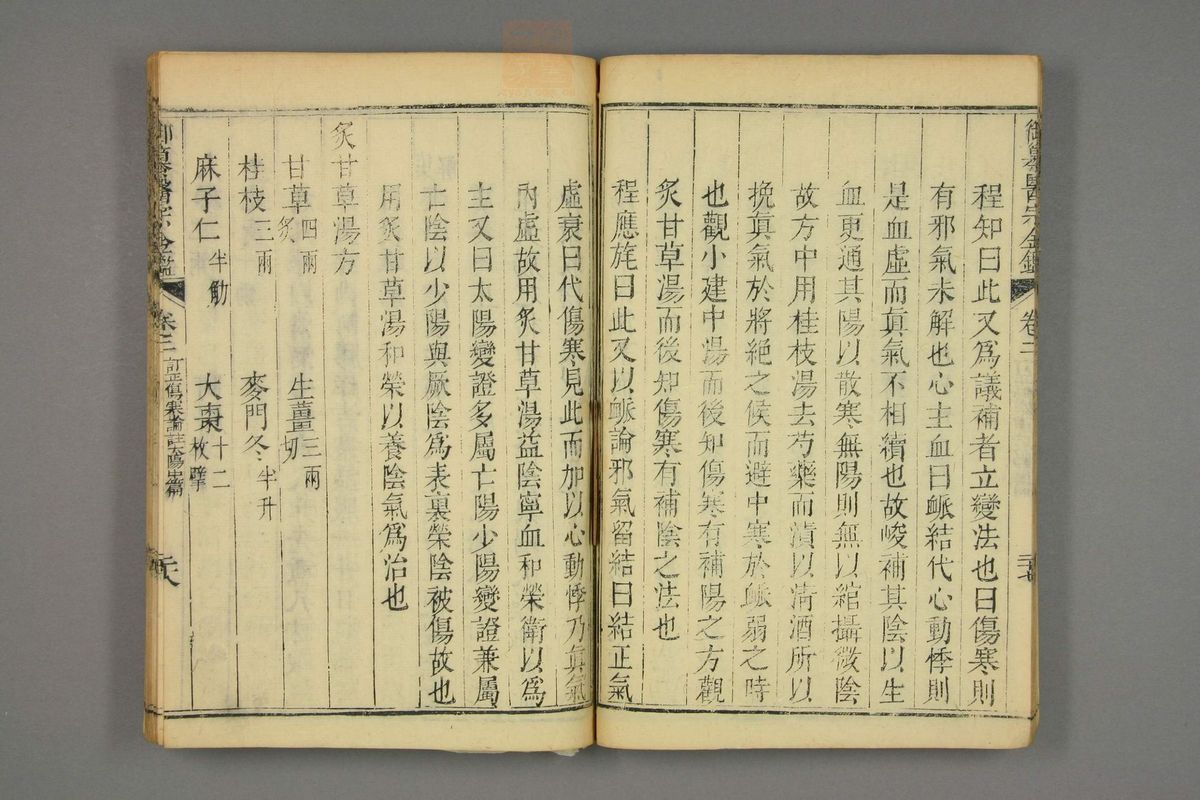 程知曰此又爲議補者立變法也曰傷寒則
有邪氣未解也心主血曰脈結代心動悸則
是血虛而眞氣不相續也故峻補其陰以生
血更通其陽以散寒無陽則無以綰攝微陰
故方中用桂枝湯去芍藥而漬以清酒所以
挽眞氣於將絕之候而避中寒於脈弱之時
也觀小建中湯而後知傷寒有補陽之方觀
炙甘草湯而後知傷寒有補陰之法也
程應旄曰此又以脈論邪氣留結曰結正氣
虛衰曰代傷寒見此而加以心動悸乃眞氣
內虛故用炙甘草湯益陰寧血和榮衛以爲
主又曰太陽變證多屬亡陽少陽變證兼屬
亡陰以少陽與厥陰爲表裏榮陰被傷故也
用炙甘草湯和榮以養陰氣爲治也
炙甘草湯方
甘草四兩炙 生薑三兩切
桂枝三兩 麥門冬半升
麻子仁半觔 大棗十二枚擘
御纂醫宗金鑑 卷三 訂正傷寒論註太陽中篇 二十八
御纂醫宗金鑑 卷三